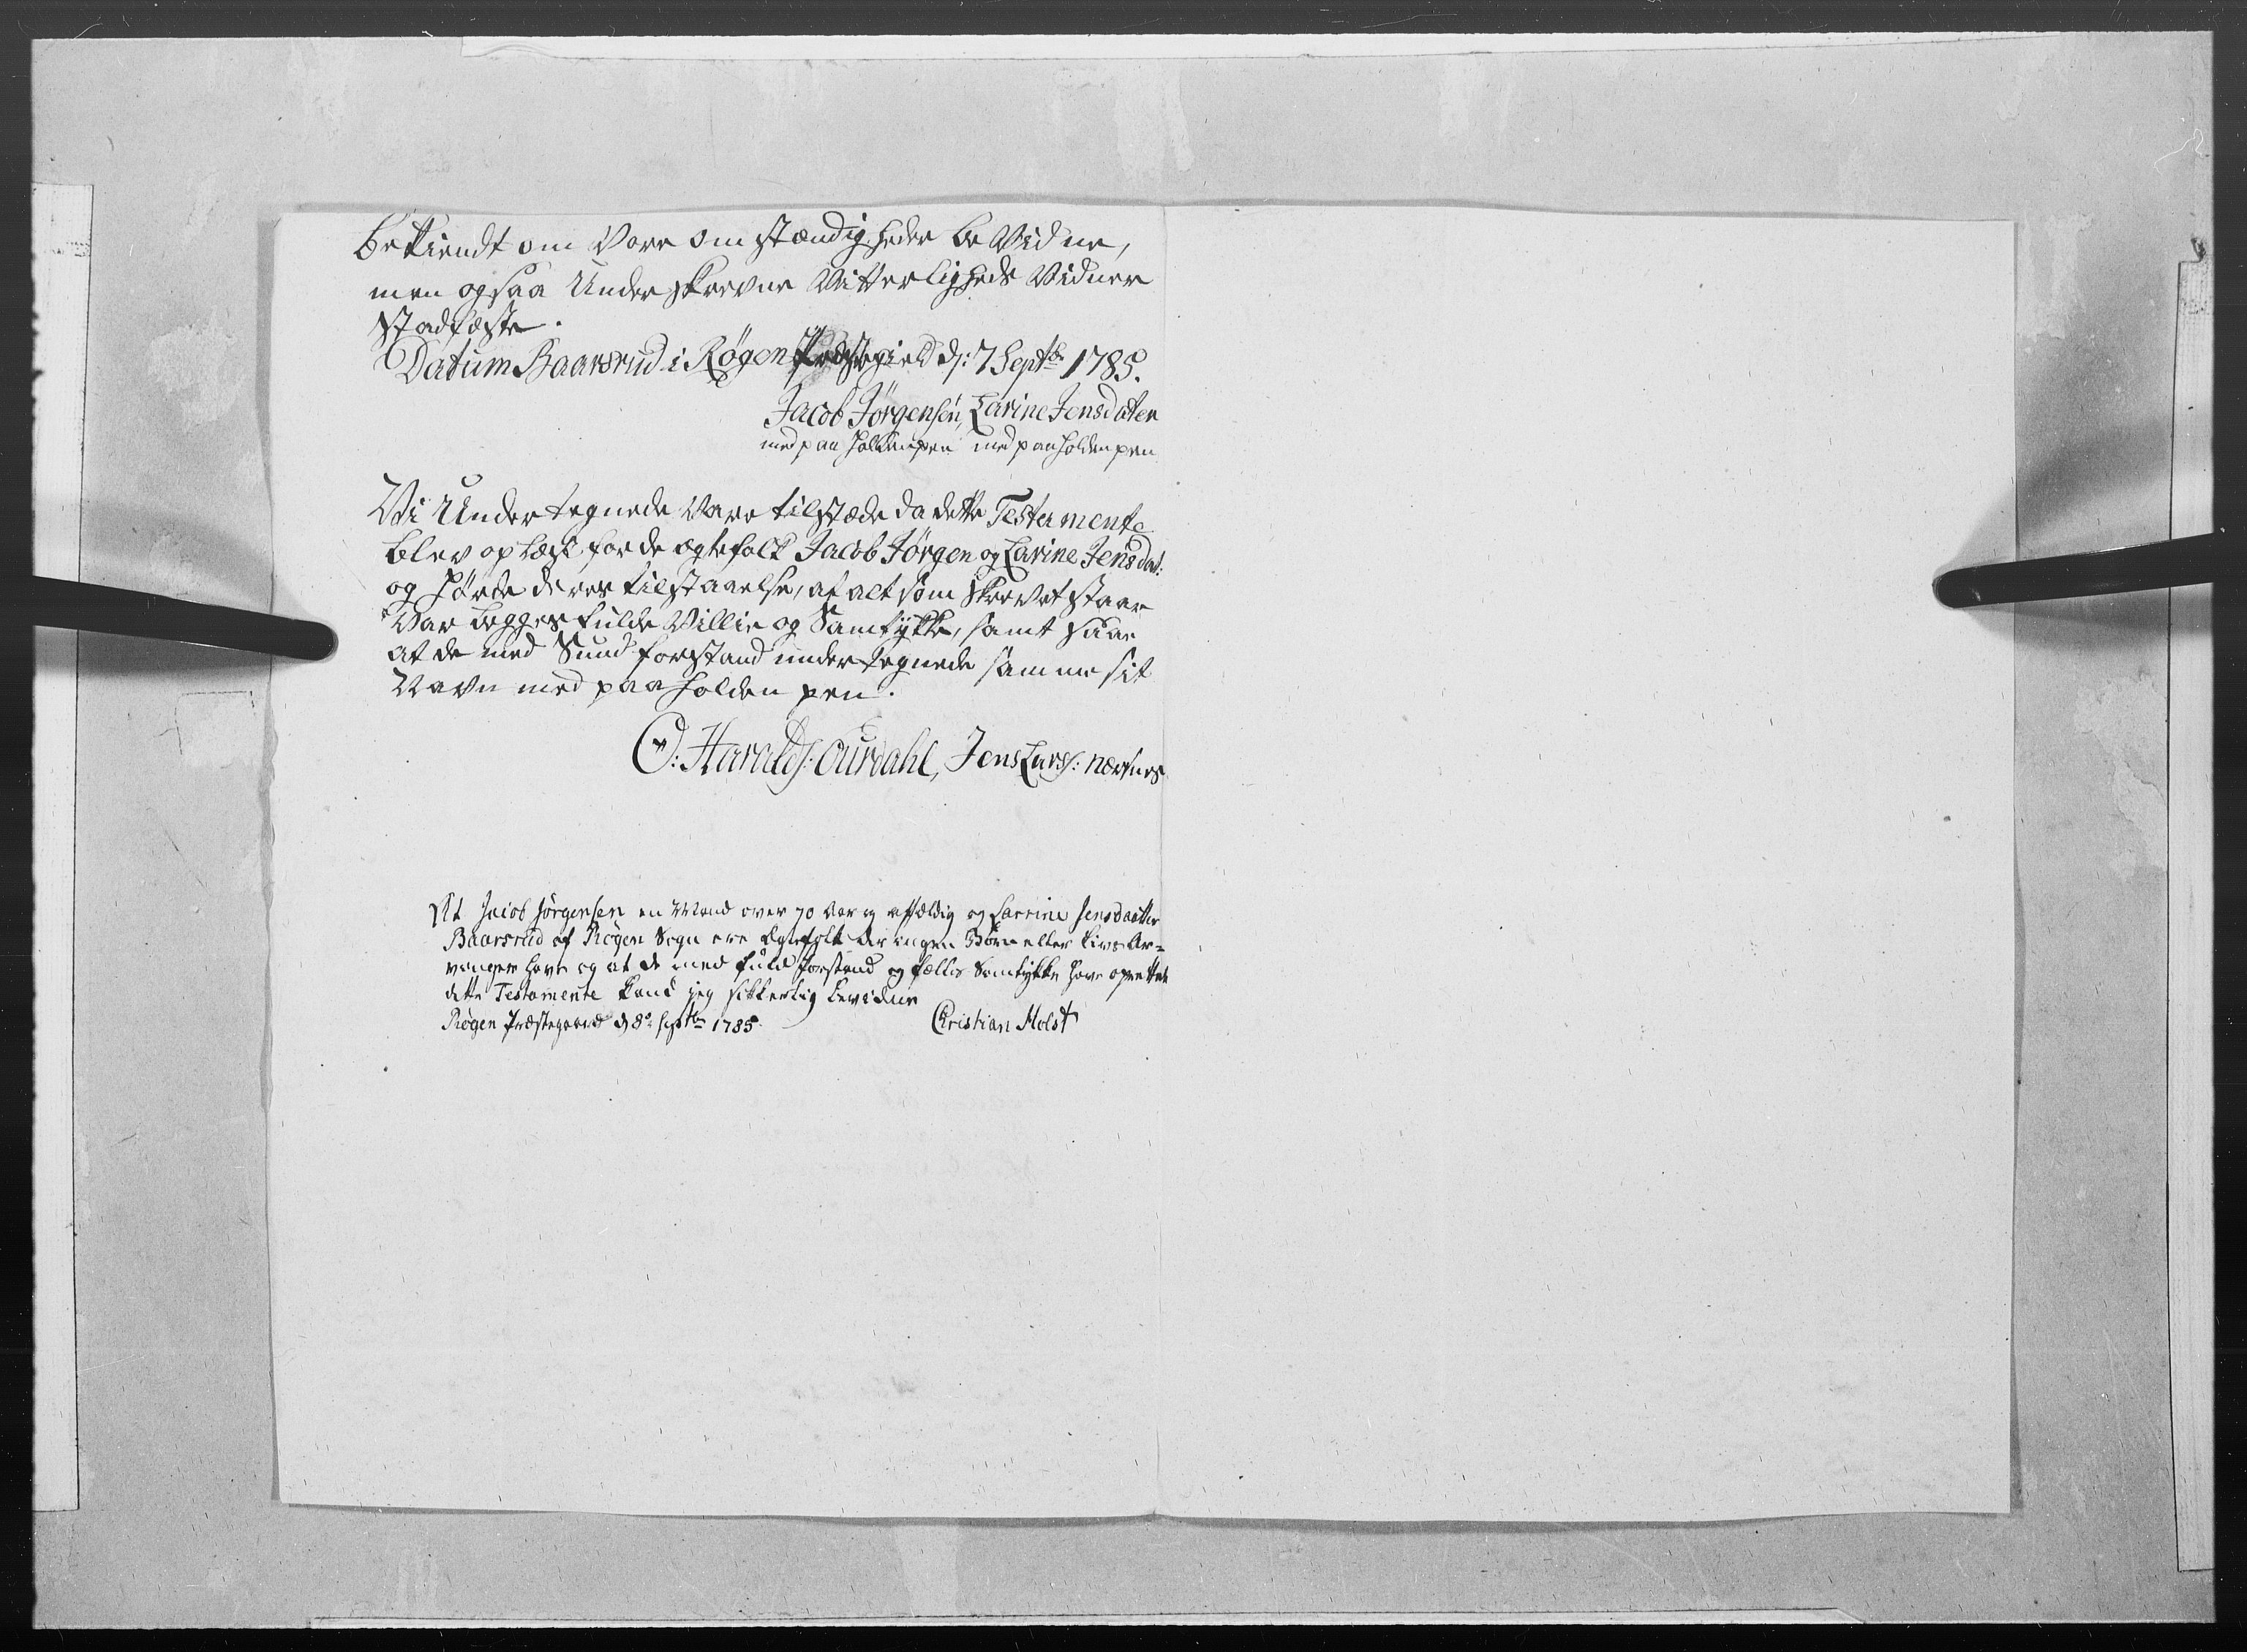 bekiendt om Vore omstændigheder be Vidne,
men ogsaa Underskrevne Vitterligheds Vidner
stadfæste.
Datum Baarsrud i Røgen Præstegield d: 7 Septbr 1785.
Jacob Jørgensen, Larine Jensdater
med paaholden pen med paaholden pen
Vi Undertegnede Vare tilstæde da dette Testermente
blev oplæst for de ægtefolk Jacob Jørgen og Larine Jensdat:
og hørde deres tilstaaelse, at alt som skrevet staar
Var begges fulde Villie og Samtykke, samt saae
at de med Sund forstand undertegnede samme sit
Navn med paaholden pen.
O: Haralds: Ourdahl, Jens Larss: nærsnes
At Jacob Jørgensen en Mand over 70 Aar og affældig og Larrine Jensdaatter
Baarsrud af Røgen Sogn ere Ægtefolk der ingen Børn eller Livs Ar=
vinger have og at de med fuld Forstand og fælles Samtykke have oprettet
dette Testamente kand jeg sikkerlig bevidne
Røgen Præstegaard d 8de Septbr 1785.
Christian Holst